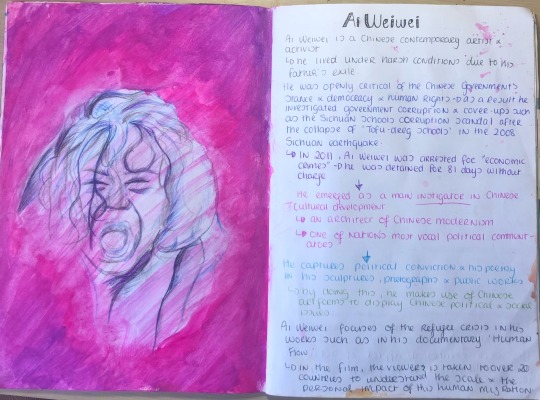 Ai Weiwei
Ai Weiwei is a Chinese contemporary artist x
activist
↳ he lived under harsh conditions due to his
father's exile
He was openly critical of the Chinese Governments
stance x democracy x human rights → as a result he
investigated government corruption x cover-ups such
as the Sichuan schools corruption scandal after
the collapse of 'Tofu-dreg schools' in the 2008
Sichuan earthquake.
↳ In 2011, Ai Weiwei was arrested for "economic
crimes" → he was detained for 81 days without
charge
He emerged as a main instigator in Chinese
Cultural development
↳ an architect of Chinese modernism
↳ one of nations most vocal political comment-
ators
He captures political conviction x his poetry
in his sculptures, photographs x public works
↳ by doing this, he makes use of Chinese
art forms to display Chinese political x social
issues
Ai Weiwei focuses of the refugee crisis in his
works such as in his documentary 'Human
Flow'
↳ In the film, the viewer is taken to over 20
countries to understand the scale x the
personal impact of this human migration